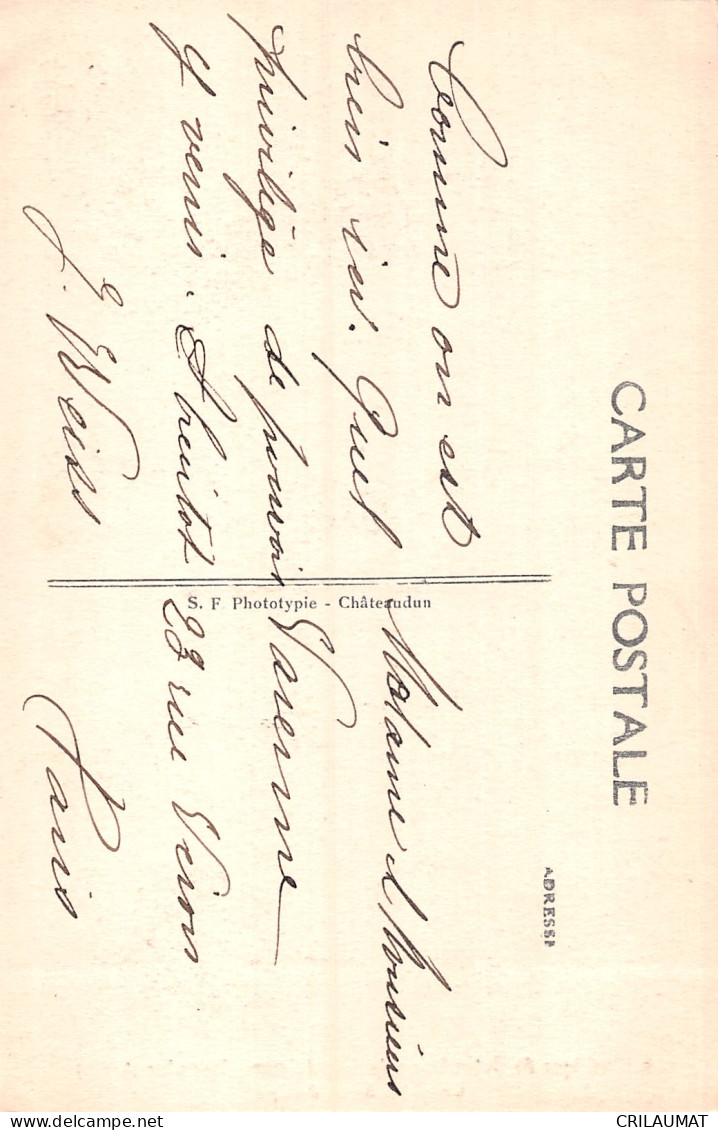 CARTE POSTALE
ADRESSE
Comme on est
bien ici. Quel
privilège de pouvoir
y venir. A bientôt
J. Weiss
S. F. Phototypie - Châteaudun
Madame & Monsieur
Varenne
23 rue Véron
Paris
CRILAUMAT